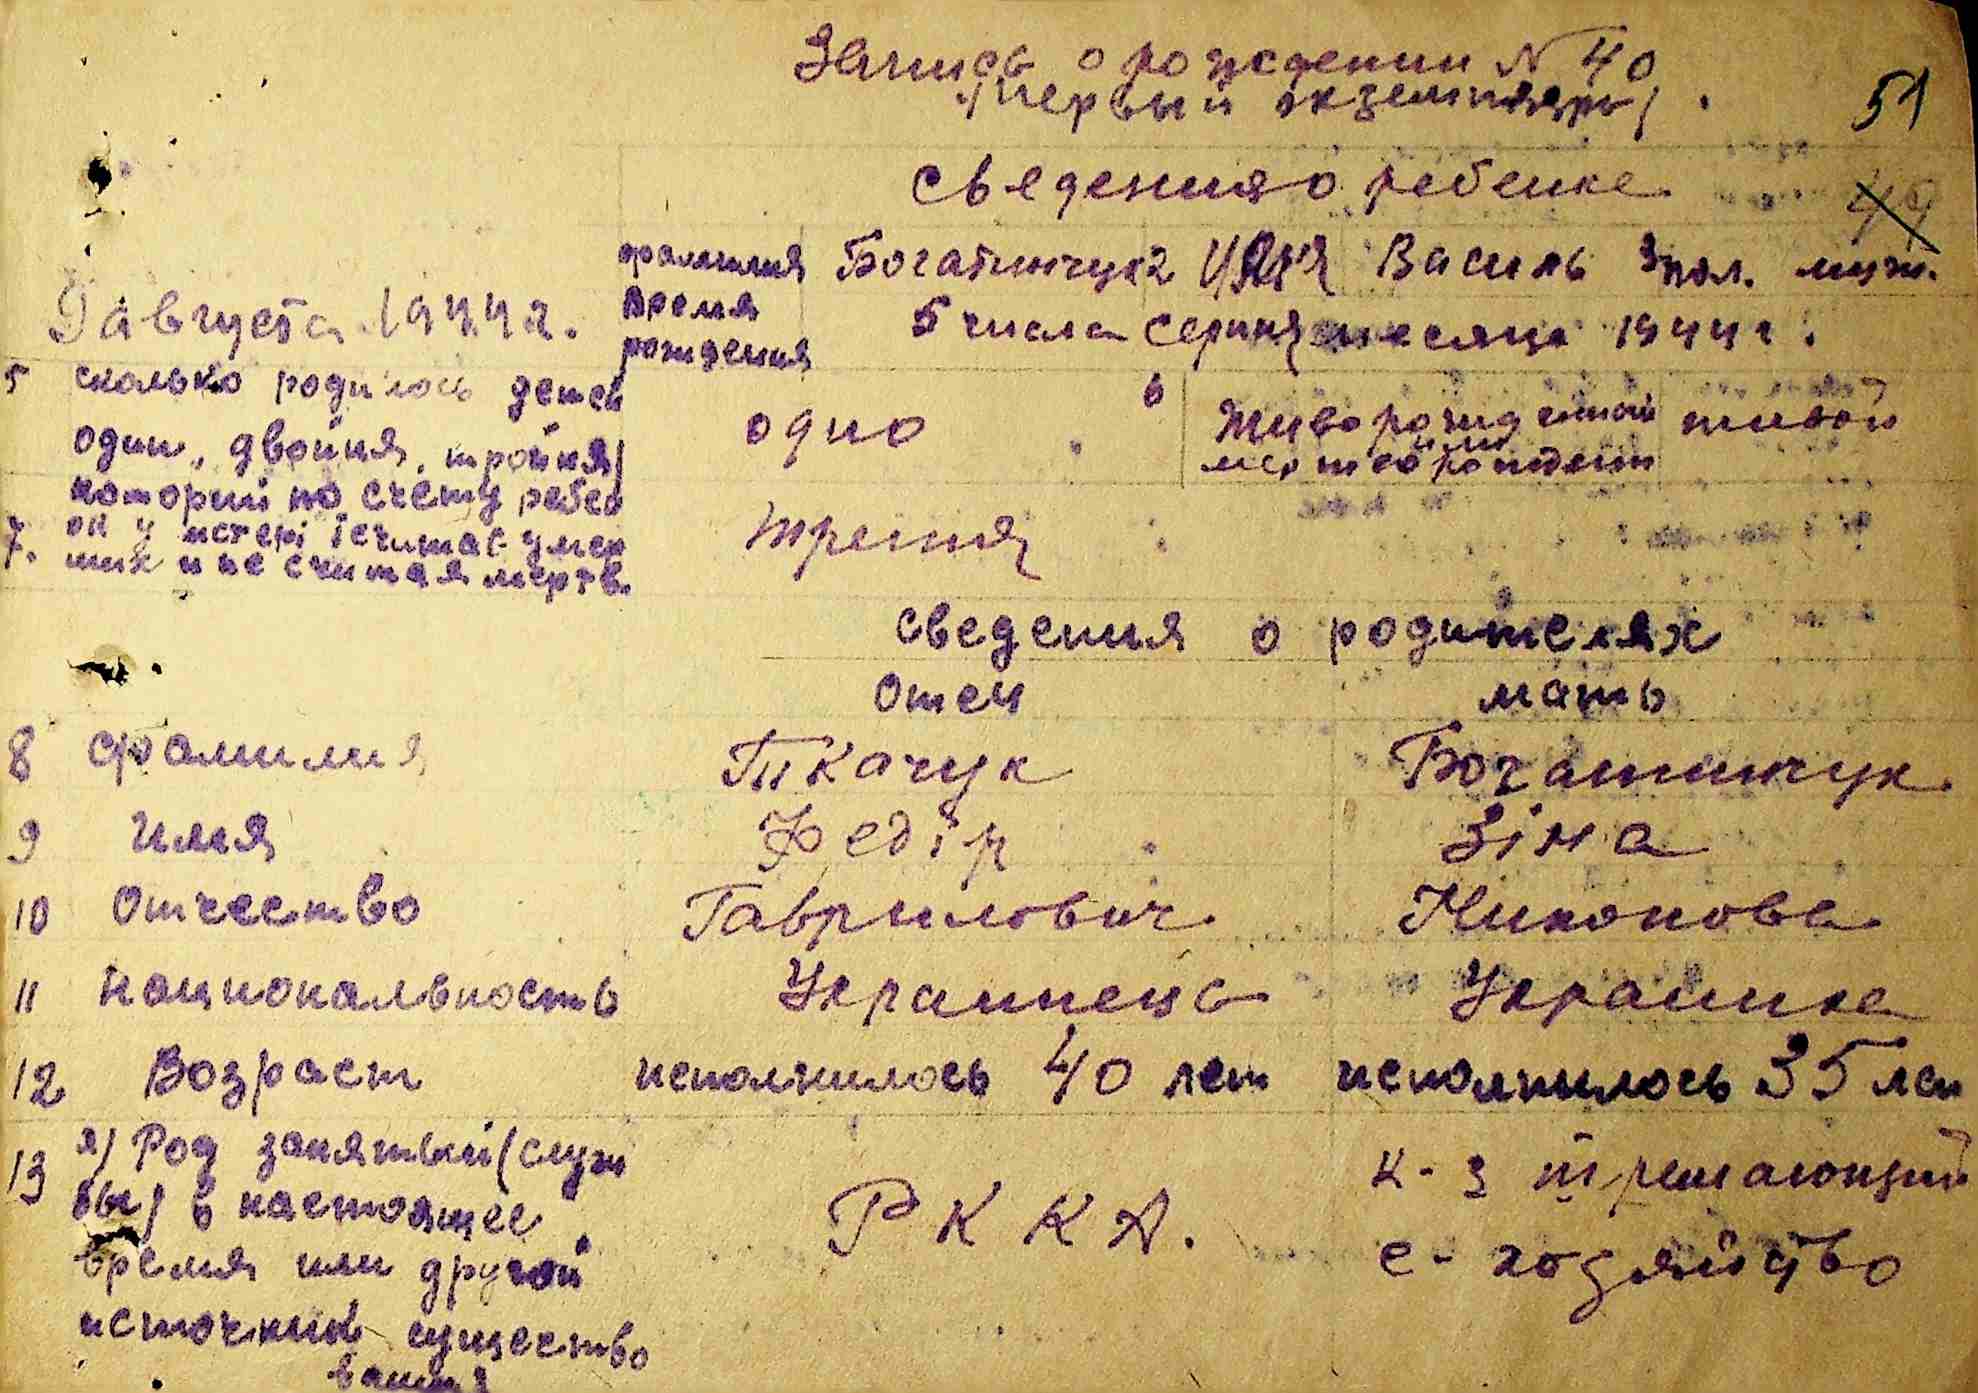 Запись о рождении № 40
/первый экземпляр/.
51
сведения о ребенке
49
9 августа 1944 г.
фамилия Богатинчук 2 имя Василь 3 пол. муж.
время рождения
5 числа серпня месяца 1944 г.
5 сколько родилось детей
один, двойня, тройня/
одно
6 живорожденный или мертворожден
живой
7. которий по счету ребен
ок у матері /считая умер
ших и не считая мертв.
третя
сведения о родителях
Отец мать
8 фамилия Ткачук Богатинчук
9 имя Федір Зіна
10 Отчество Гаврилович Никонова
11 национальность Украинець Украинка
12 Возраст исполнилось 40 лет исполнилось 35 лет
13 а) Род занятый (служ
бы) в настоящее
время или другой
источник существо
вания
Р К К А.
к-з
с-хозяйство